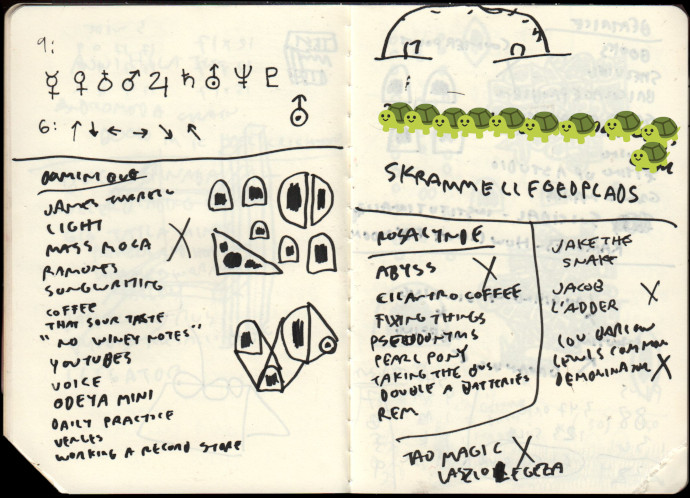 9:
☿ ♀ ♁ ♂ ♃ ♄ ⛢ ♆ ♇
6: ↑ ↓ ← → ↘ ↖
DOMINIQUE
JAMES TURRELL
LIGHT
MASS MOCA
RAMONES
SONGWRITING
COFFEE
THAT SOUR TASTE
"NO WINEY NOTES"
YOUTUBES
VOICE
ODEYA MINI
DAILY PRACTICE
WORKING A RECORD STORE
ROSALYNDE
ABYSS X
CILANTRO COFFEE
FIXING THINGS
PSEUDONYMS
PEARL PONY
TAKING THE BUS
DOUBLE A BATTERIES
REM
JAKE THE
SNAKE
JACOB X
L'ADDER
LOU BARLOW
LEWIS COMMON
DEMONINATOR X
TAO MAGIC X
LASZLO LEGEZA